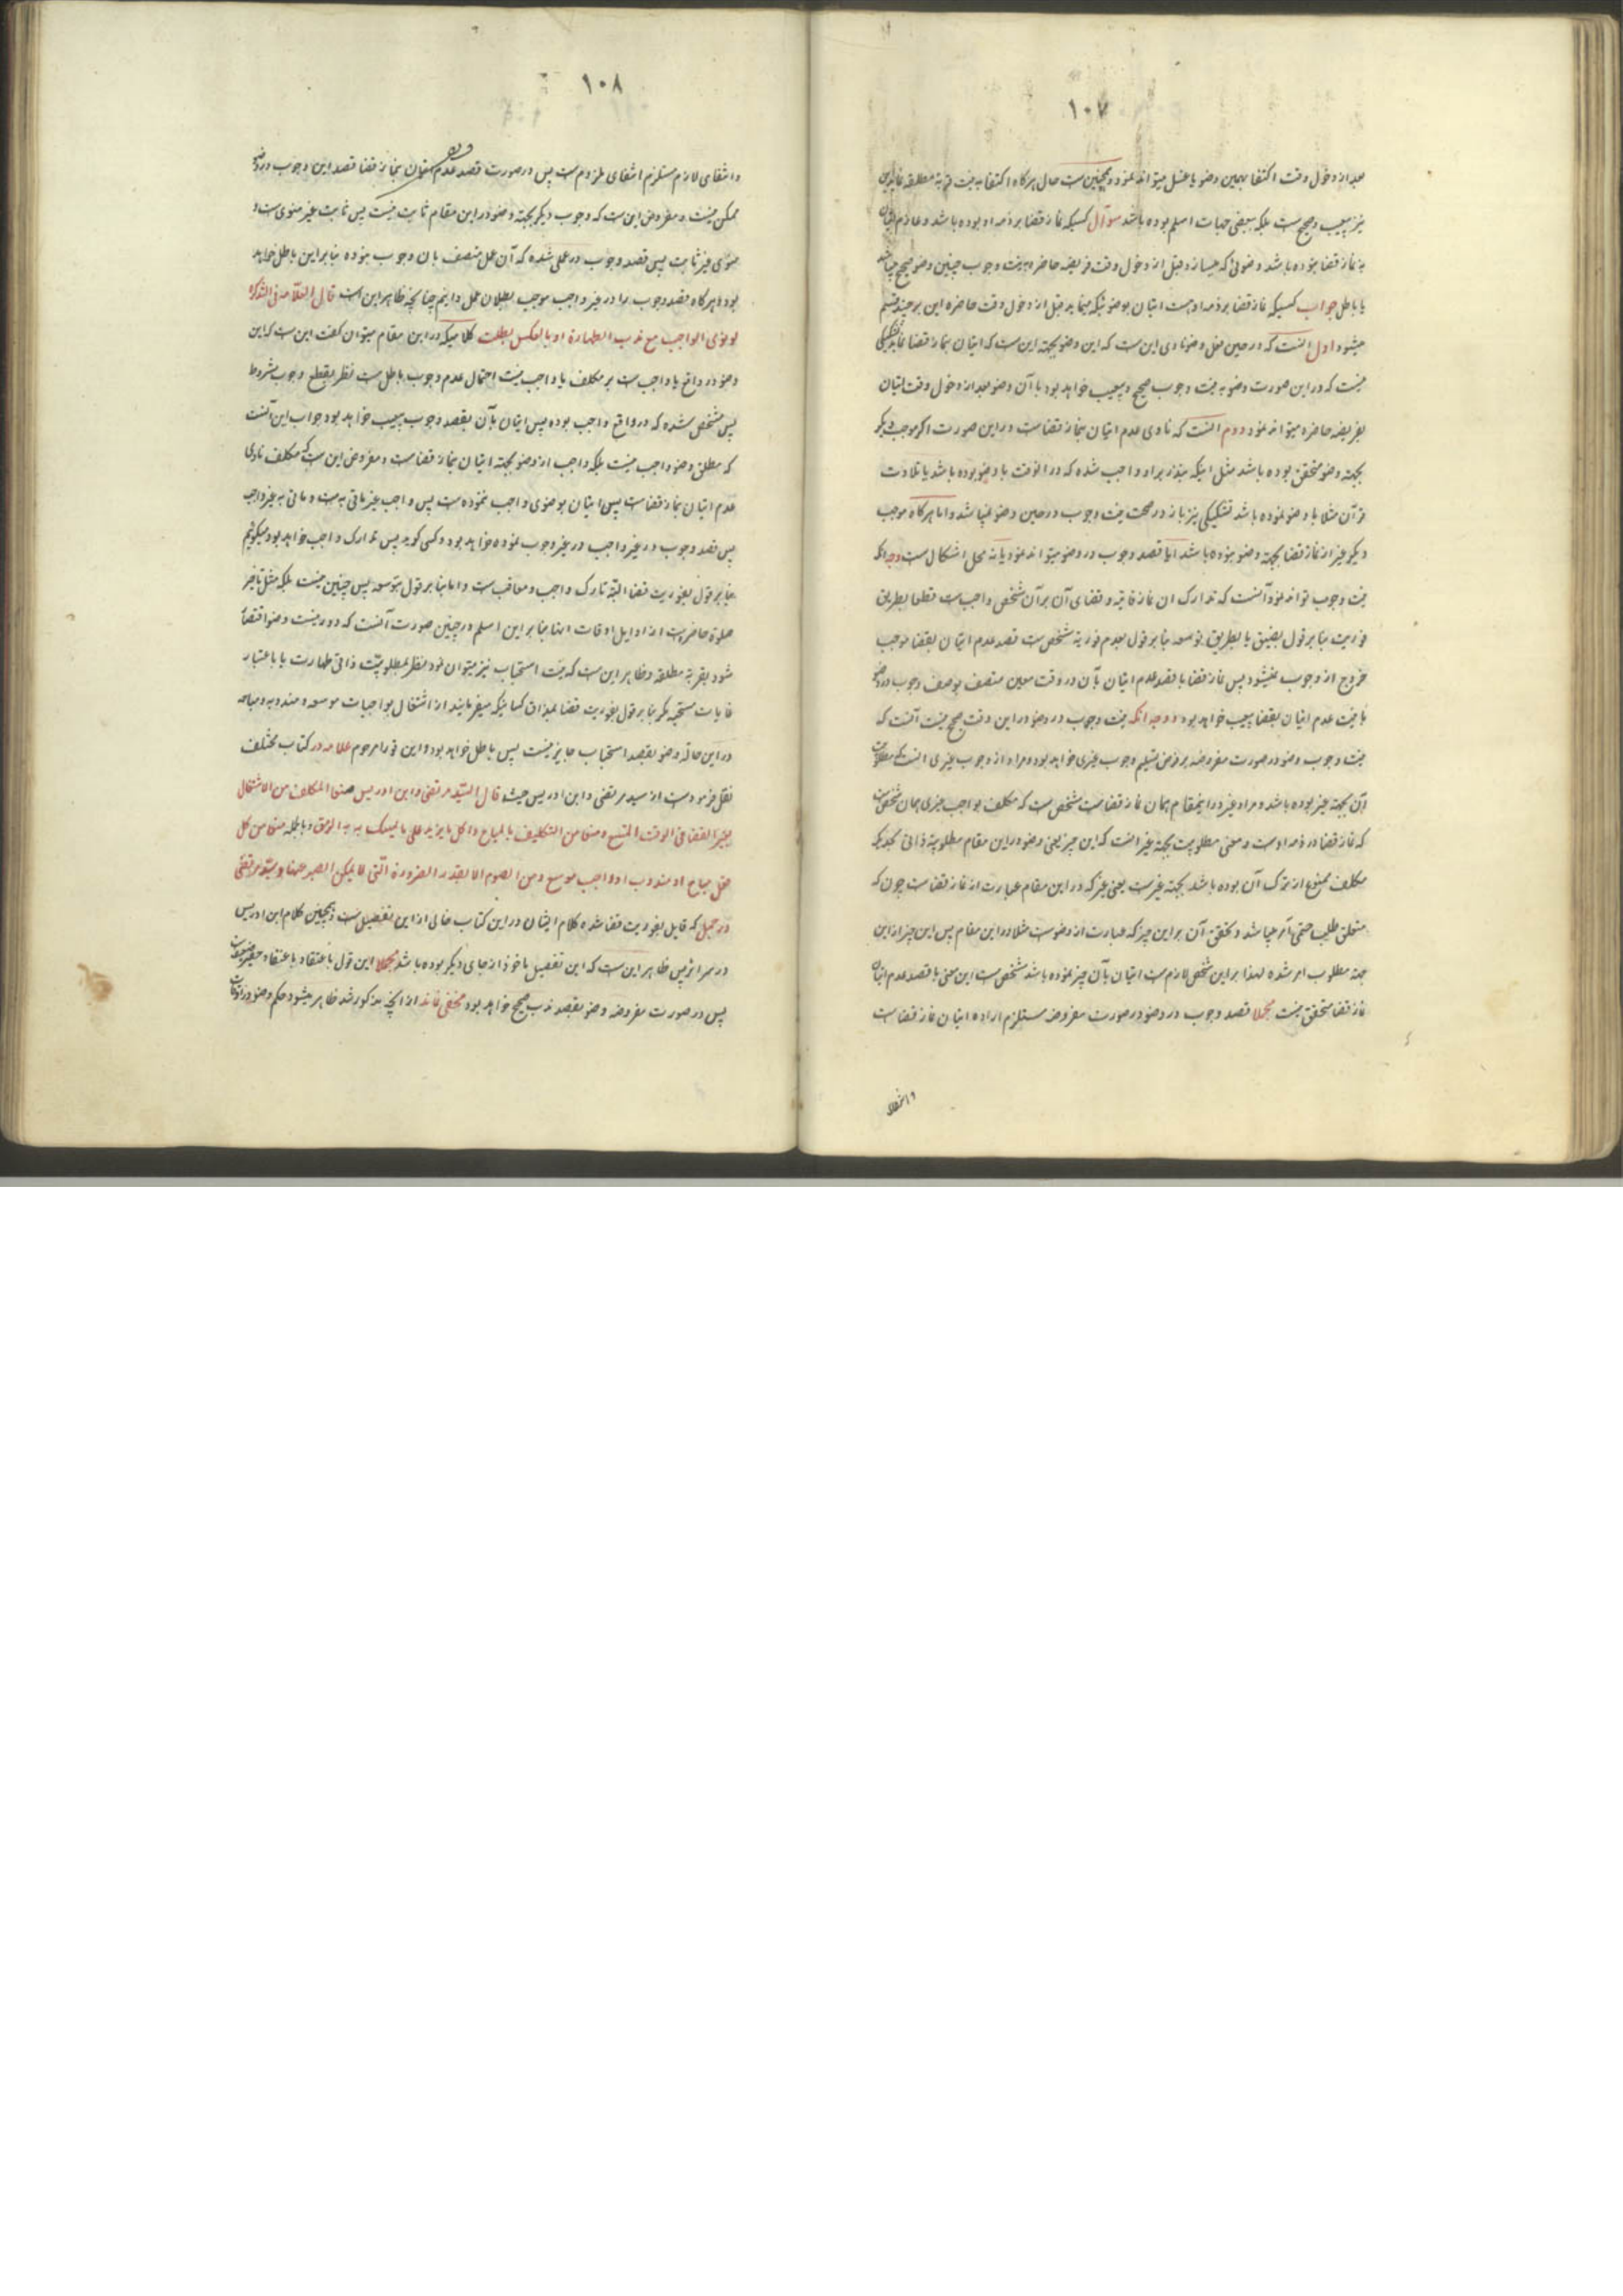 ١٠٧
بعد از دخول وقت اکتفا بهمین وضو یا غسل میتواند نمود و همچنین است حال هرگاه اکتفا به نیت قربة مطلقه نماید این
نیز بیعیب و صحیح است بلکه ببعضی جهات اسلم بوده باشد سوال کسیکه نماز قضا بر ذمه او بوده باشد و عازم اتیان
به نماز قضا نبوده باشد وضوئی که میسازد قبل از دخول وقت فریضه حاضره به نیت وجوب چنین وضو صحیح میباشد
یا باطل جواب کسیکه نماز قضا بر ذمه اوست اتیان بوضوئیکه مینماید قبل از دخول وقت حاضره این بر چند قسم
میشود اول آنست که در حین فعل وضو ناوی این است که این وضو بجهة این است که اتیان بنماز قضا نماید تشکیکی
نیست که در این صورت وضو به نیت وجوب صحیح و بیعیب خواهد بود با آن وضو بعد از دخول وقت اتیان
بفریضه حاضره میتواند نمود دوم آنست که ناوی عدم اتیان بنماز قضاست در این صورت اگر موجب دیگر
بجهة وضو متحقق بوده باشد مثل اینکه بنذر بر او واجب شده که در آنوقت با وضو بوده باشد یا تلاوت
قرآن مثلا با وضو نموده باشد تشکیکی نیز باز در صحت نیت وجوب در حین وضو نمیباشد و اما هرگاه موجب
دیگر غیر از نماز قضا بجهة وضو نبوده باشد آیا قصد وجوب در وضو میتواند نمود یا نه محل اشکال است وجه آنکه
نیت وجوب تواند نمود آنست که تدارک آن نماز فائته و قضای آن بر آن شخص واجب است قطعا بطریق
فوریت بنا بر قول بضیق یا بطریق توسعه بنا بر قول بعدم فوریة شخص است قصد عدم اتیان بقضا موجب
خروج از وجوب نمیشود پس نماز قضا با قصد عدم اتیان بآن در وقت معین متصف بوصف وجوب در وضو
با نیت عدم اتیان بقضا بیعیب خواهد بود و وجه آنکه نیت وجوب در وضو در این وقت صحیح نیست آنست که
نیت وجوب وضو در صورت مفروضه بر فرض تسلیم وجوب غیری خواهد بود و مراد از وجوب غیری آنست که مطلوبیت
آن بجهة غیر بوده باشد و مراد غیر در اینمقام همان نماز قضاست شخص است که مکلف بواجب غیری همان شخص است
که نماز قضا در ذمه اوست و معنی مطلوبیت بجهة غیر آنست که این چیز یعنی وضو در این مقام مطلوبیة ذاتی بحدیکه
مکلف ممنوع از ترک آن بوده باشد بجهة غیرست یعنی غیر که در این مقام عبارت از نماز قضاست چون که
متعلق طلب حتمی آمر میباشد و تحقق آن بر این چیز که عبارت از وضوست مثلا در این مقام پس این چیز از این
جهة مطلوب امر شده لهذا بر این شخص لازم است اتیان بآن چیز نموده باشد شخص است این معنی با قصد عدم اتیان
نماز قضا متحقق نیست مجملا قصد وجوب در وضو در صورت مفروضه مستلزم اراده اتیان نماز قضاست
و انتفای
١٠٨
و انتفای لازم مستلزم انتفای ملزوم است پس در صورت قصد عدم اتیان بنماز قضا قصد این وجوب در وضو
ممکن نیست و مفروض این است که وجوب دیگر بجهة وضو در این مقام ثابت نیست پس ثابت غیر منوی است و
منوی غیر ثابت پس قصد وجوب در عملی شده که آن عمل متصف بان وجوب نبوده بنا بر این باطل خواهد
بود هرگاه قصد وجوب را در غیر واجب موجب بطلان عمل دانیم چنانچه ظاهر این است قال العلامه فی التذکره
لو نوی الواجب مع ندب الطهارة او بالعکس بطلت کلامیکه در این مقام میتوان گفت این است که این
وضو در واقع یا واجب است بر مکلف یا واجب نیست احتمال عدم وجوب باطل است نظر بقطع وجوب مشروط
پس مشخص شده که در واقع واجب بوده پس اتیان بآن بقصد وجوب بیعیب خواهد بود جواب این آنست
که مطلق وضو واجب نیست بلکه واجب از وضو بجهة اتیان بنماز قضاست و مفروض این است که مکلف ناوی
عدم اتیان بنماز قضاست پس اتیان بوضوی واجب ننموده است پس واجب غیر ماتی به است و ماتی به غیر واجب
پس قصد وجوب در غیر واجب در غیر وجوب نموده خواهد بود و کسی گوید پس تدارک واجب خواهد بود میگوئیم
بنا بر قول بفوریت قضا البته تارک واجب و معاقب است و اما بنا بر قول بتوسعه پس چنین نیست بلکه مثل تاخیر
صلوة حاضره است از اوایل اوقات آنها بنا بر این اسلم در چنین صورت آنست که دو رنیت وضو اقتضا
شود بقربة مطلقه و ظاهر این است که نیت استحباب نیز میتوان نمود نظر بمطلوبیّت ذاتی طهارت یا باعتبار
غایات مستحبه مگر بنا بر قول بفوریت قضا بمذاق کسانیکه میفرمایند از اشتغال بواجبات موسعه و مندوبه و مباحه
در این حالة وضو بقصد استحباب جایز نیست پس باطل خواهد بود و این قول را مرحوم علامه در کتاب مختلف
نقل فرموده است از سید مرتضی و ابن ادریس حیث قال السّید مرتضی و ابن ادریس منعا المکلف من الاشتغال
بغیر القضا فی الوقت المتسع و منعا من التکلیف بالمباح و اکل ما یزید علی ما یمسک به الرمق و بالجمله منعا من کل
فعل مباح او مندوب او واجب موسع و من الصوم الا بقدر الضرورة الّتی لا یمکن الصبر عنها و سیّد مرتضی
در جمل که قایل بفوریت قضا شده کلام ایشان در این کتاب خالی از این تفصیل است و همچنین کلام ابن ادریس
در سرائر پس ظاهر این است که این تفصیل ماخوذ از جای دیگر بوده باشد مجملا این قول باعتقاد
پس در صورت مفروضه وضو بقصد ندب صحیح خواهد بود مخفی نماند از آنچه مذکور شد ظاهر میشود حکم وضو در اوقات